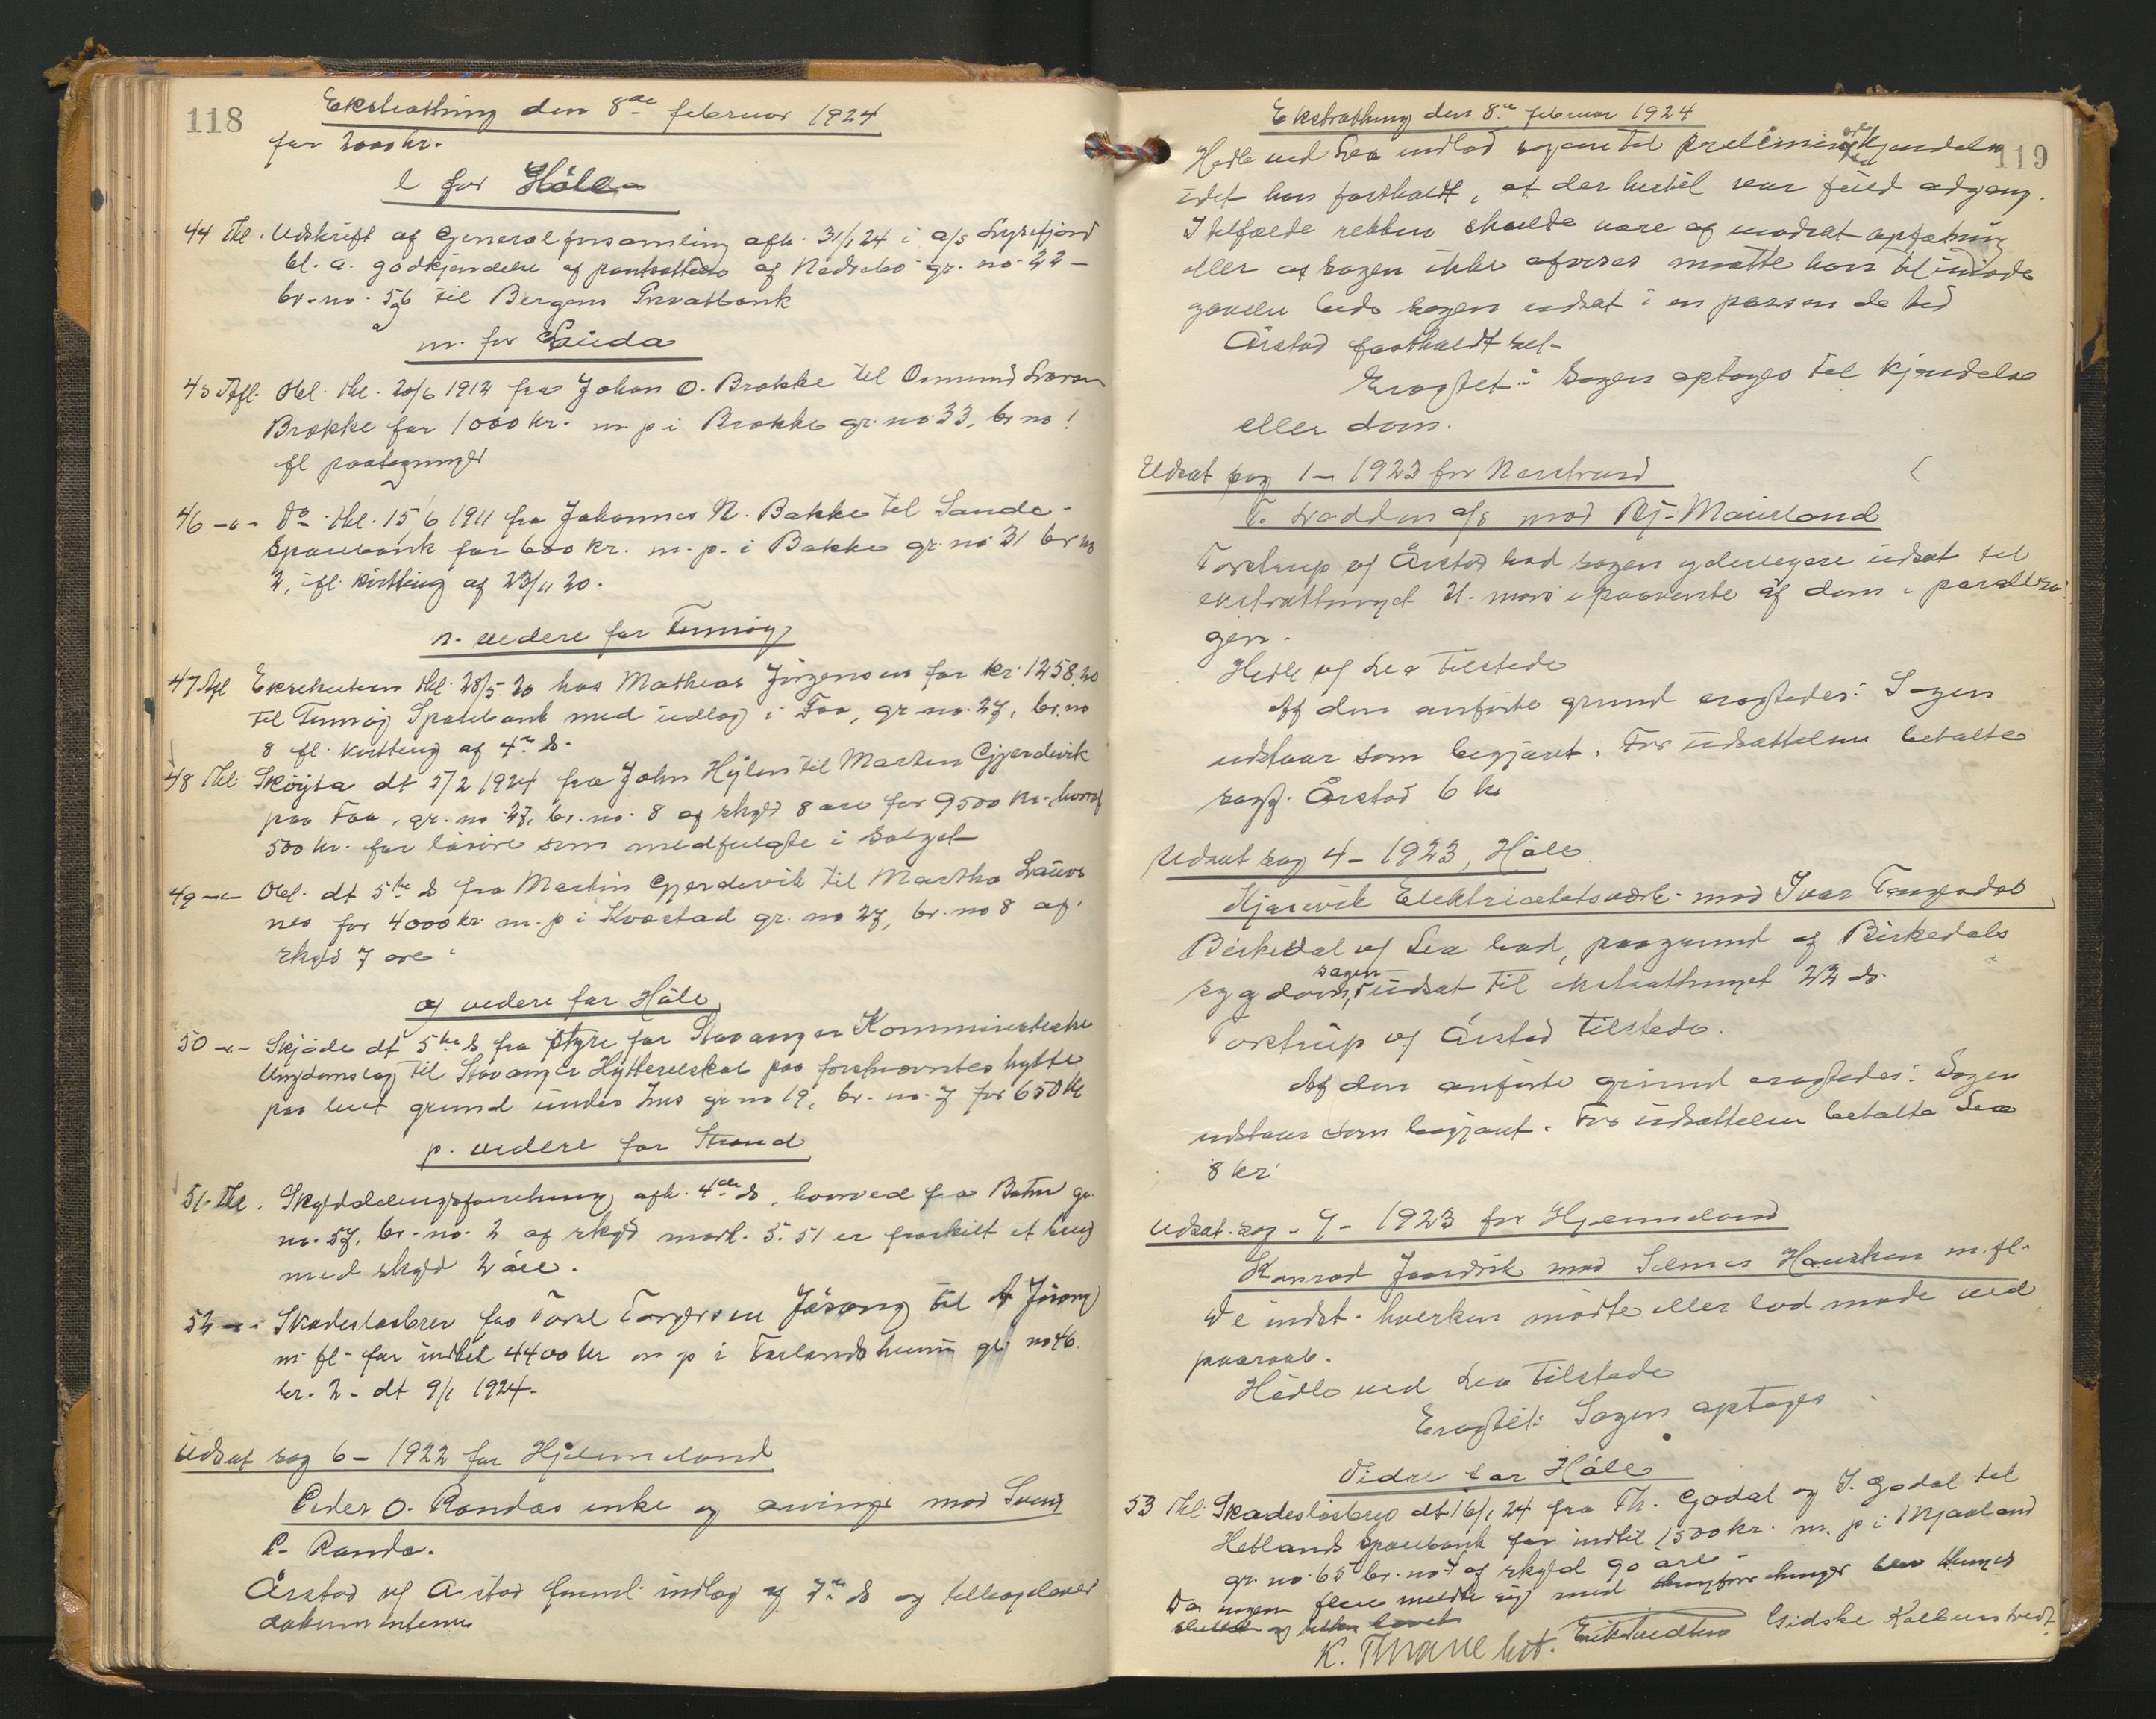 118
Ekstratthing den 8de februar 1924
for 2000 kr.
l for Höle
44 Thl. Udskrift af Generalforsamling afh. 31/1 24 i a/s Lysefjord
bl. a. godkjendelse af pantsættelse af Nedrebö gr. no. 22 –
br. no. 56 til Bergens Privatbank
m. for Sauda
45 Afl. Obl. thl. 20/6 1912 fra Johan O. Brekke til Osmund Larsen
Brekke for 1000 kr. m. p i Brekke gr. no 33, br no 1
fl paategninger
46 -"- Do thl. 15/6 1911 fra Johannes N. Bakke til Sande-
Sparebank for 600 kr. m. p. i Bakke gr. no 31 br no
2, ifl. kvittering af 23/11 20.
n. videre for Finnöy
47 Afl Eksekution thl. 28/5 20 hos Mathias Jörgensen for kr. 1258.20
til Finnöy Sparebank med udlæg i Foa, gr. no. 27, br. no
8 fl. kvittering af 4de ds.
48 Thl Sköyte dt 5/2 1924 fra John Hylen til Martin Gjerdevik
paa Foa, gr. no 27, br. no. 8 af skyld 8 øre for 9500 kr. hvoraf
500 kr. for lösöre som medfulgte i salget
49 -"- Obl. dt 5te ds fra Martin Gjerdevik til Martha
nes for 4000 kr. m. p i Kvestad gr. no 27, br. no 8 af
skyld 7 øre.
o videre for Höle
50 -"- Skjöde dt 5te ds fra styre for Stavanger Kommunistiske
Ungdomslag til Stavanger Hytteselskab paa forstnævntes hytte
paa leiet grund under Ims gr no 19, br. no. 7 for 650 kr
p. videre for Strand
51 Thl. Skylddelingsforretning afh. 4de ds, hvorved fra Botne gr.
no. 57, br. no. 2 af skyld mark 5.51 er fraskilt et brug
med skyld 2 øre.
52 -"- Skadeslösbrev fra Torkel Torgersen Jösang til A Jösang
m. fl. for indtil 4400 kr m p i Tarlandshuus gr. no 46.
br. 2. dt 9/1 1924.
Udsat sag 6 – 1922 for Hjelmeland
Peder O. Randas enke og arvinger mod Svein
P. Randa.
Årstad v/ A stad freml. indlæg af 7de ds og tilleveret
dokumenterne
119
Ekstratthing den 8de februar 1924
Hedle ved Lea indlod sagen til preliminær kjendelse
idet han fastholdt, at der hertil var fuld adgang.
I tilfælde retten skulde være af modsat opfatning
eller at sagen ikke afvises maatte han til imödegaaelse
gaaelse bede sagen udsat i en passende tid
Årstad fastholdt sit.
Eragtet: Sagen optages til kjendelse
eller dom.
Udsat sag 1 – 1923 for Nerstrand
T. Lodden a/s mod Bj. Mæland
Torstrup v/ Årstad bad sagen yderligere udsat til
ekstratthinget 21. mars i paavente af dom i parallelsa-
gen.
Hedle v/ Lea tilstede
Af den anförte grund eragtedes: Sagen
udstaar som begjært. For udsættelsen betalte
sagf. Årstad 6 kr
Udsat sag 4 – 1923, Höle.
Kjærevik Elektricitetsværk mod Ivar Tengesdal
Birkedal v/ Lea bad, paagrund af Birkedals
sygdom, sagen udsat til ekstratthinget 22 ds.
Torstrup v/ Årstad tilstede.
Af den anförte grund eragtedes: Sagen
udstaar som begjært. For udsættelsen betalte Lea
8 kr.
Udsat sag 9 – 1923 for Hjelmeland
Konrad Jonsvik mod Selmer Hausken m. fl.
De indst. hverken mödte eller lod möde ved
paaraab.
Hedle ved Lea tilstede
Eragtet: Sagen optages
Videre for Höle
53 Thl. Skadeslösbrev dt 16/1 24 fra Th. Godal og I. Godal til
Hetlands Sparebank for indtil 1500 kr. m. p i Mjaaland
gr. no. 65 br. no 7 af skyld 90 øre –
Da ingen flere meldte sig med thingforretninger blev thinget
sluttet og retten hævet
K. Thrane kst. Gidske Kolbenstvedt